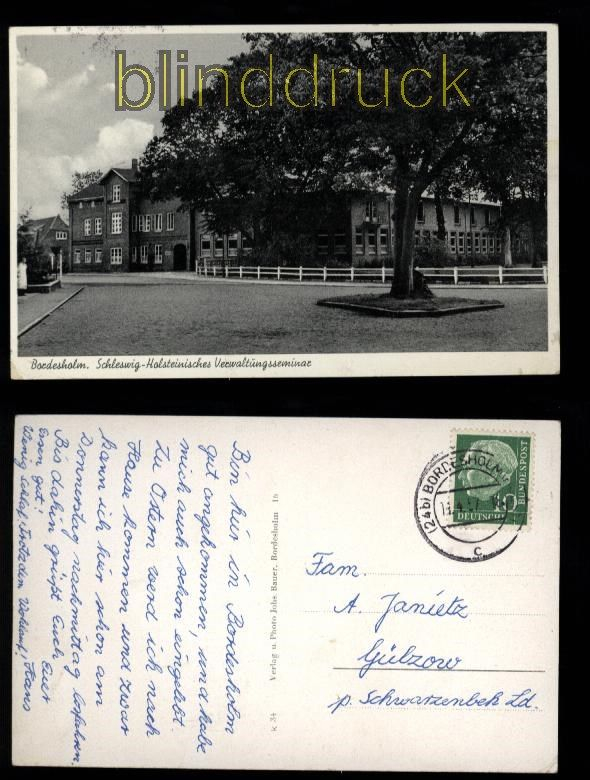 blinddruck
Bordesholm. Schleswig-Holsteinisches Verwaltungsseminar
Bin hier in Bordesholm
gut angekommen, und habe
mich auch schon eingelebt.
Zu Ostern werd ich nach
Hause kommen und zwar
kann ich hier schon am
Donnerstag nachmittag losfahren.
Bis dahin grüßt Euch, Euer
Hans
Essen gut!
Wenig Schlaf, trotzdem Wohlauf!
k 34 Verlag u. Photo Johs. Bauer, Bordesholm 16
(24b) BORDESHOLM
c
10
DEUTSCHE
BUNDESPOST
Fam.
A. Janietz
Gülzow
p. Schwarzenbek Ld.